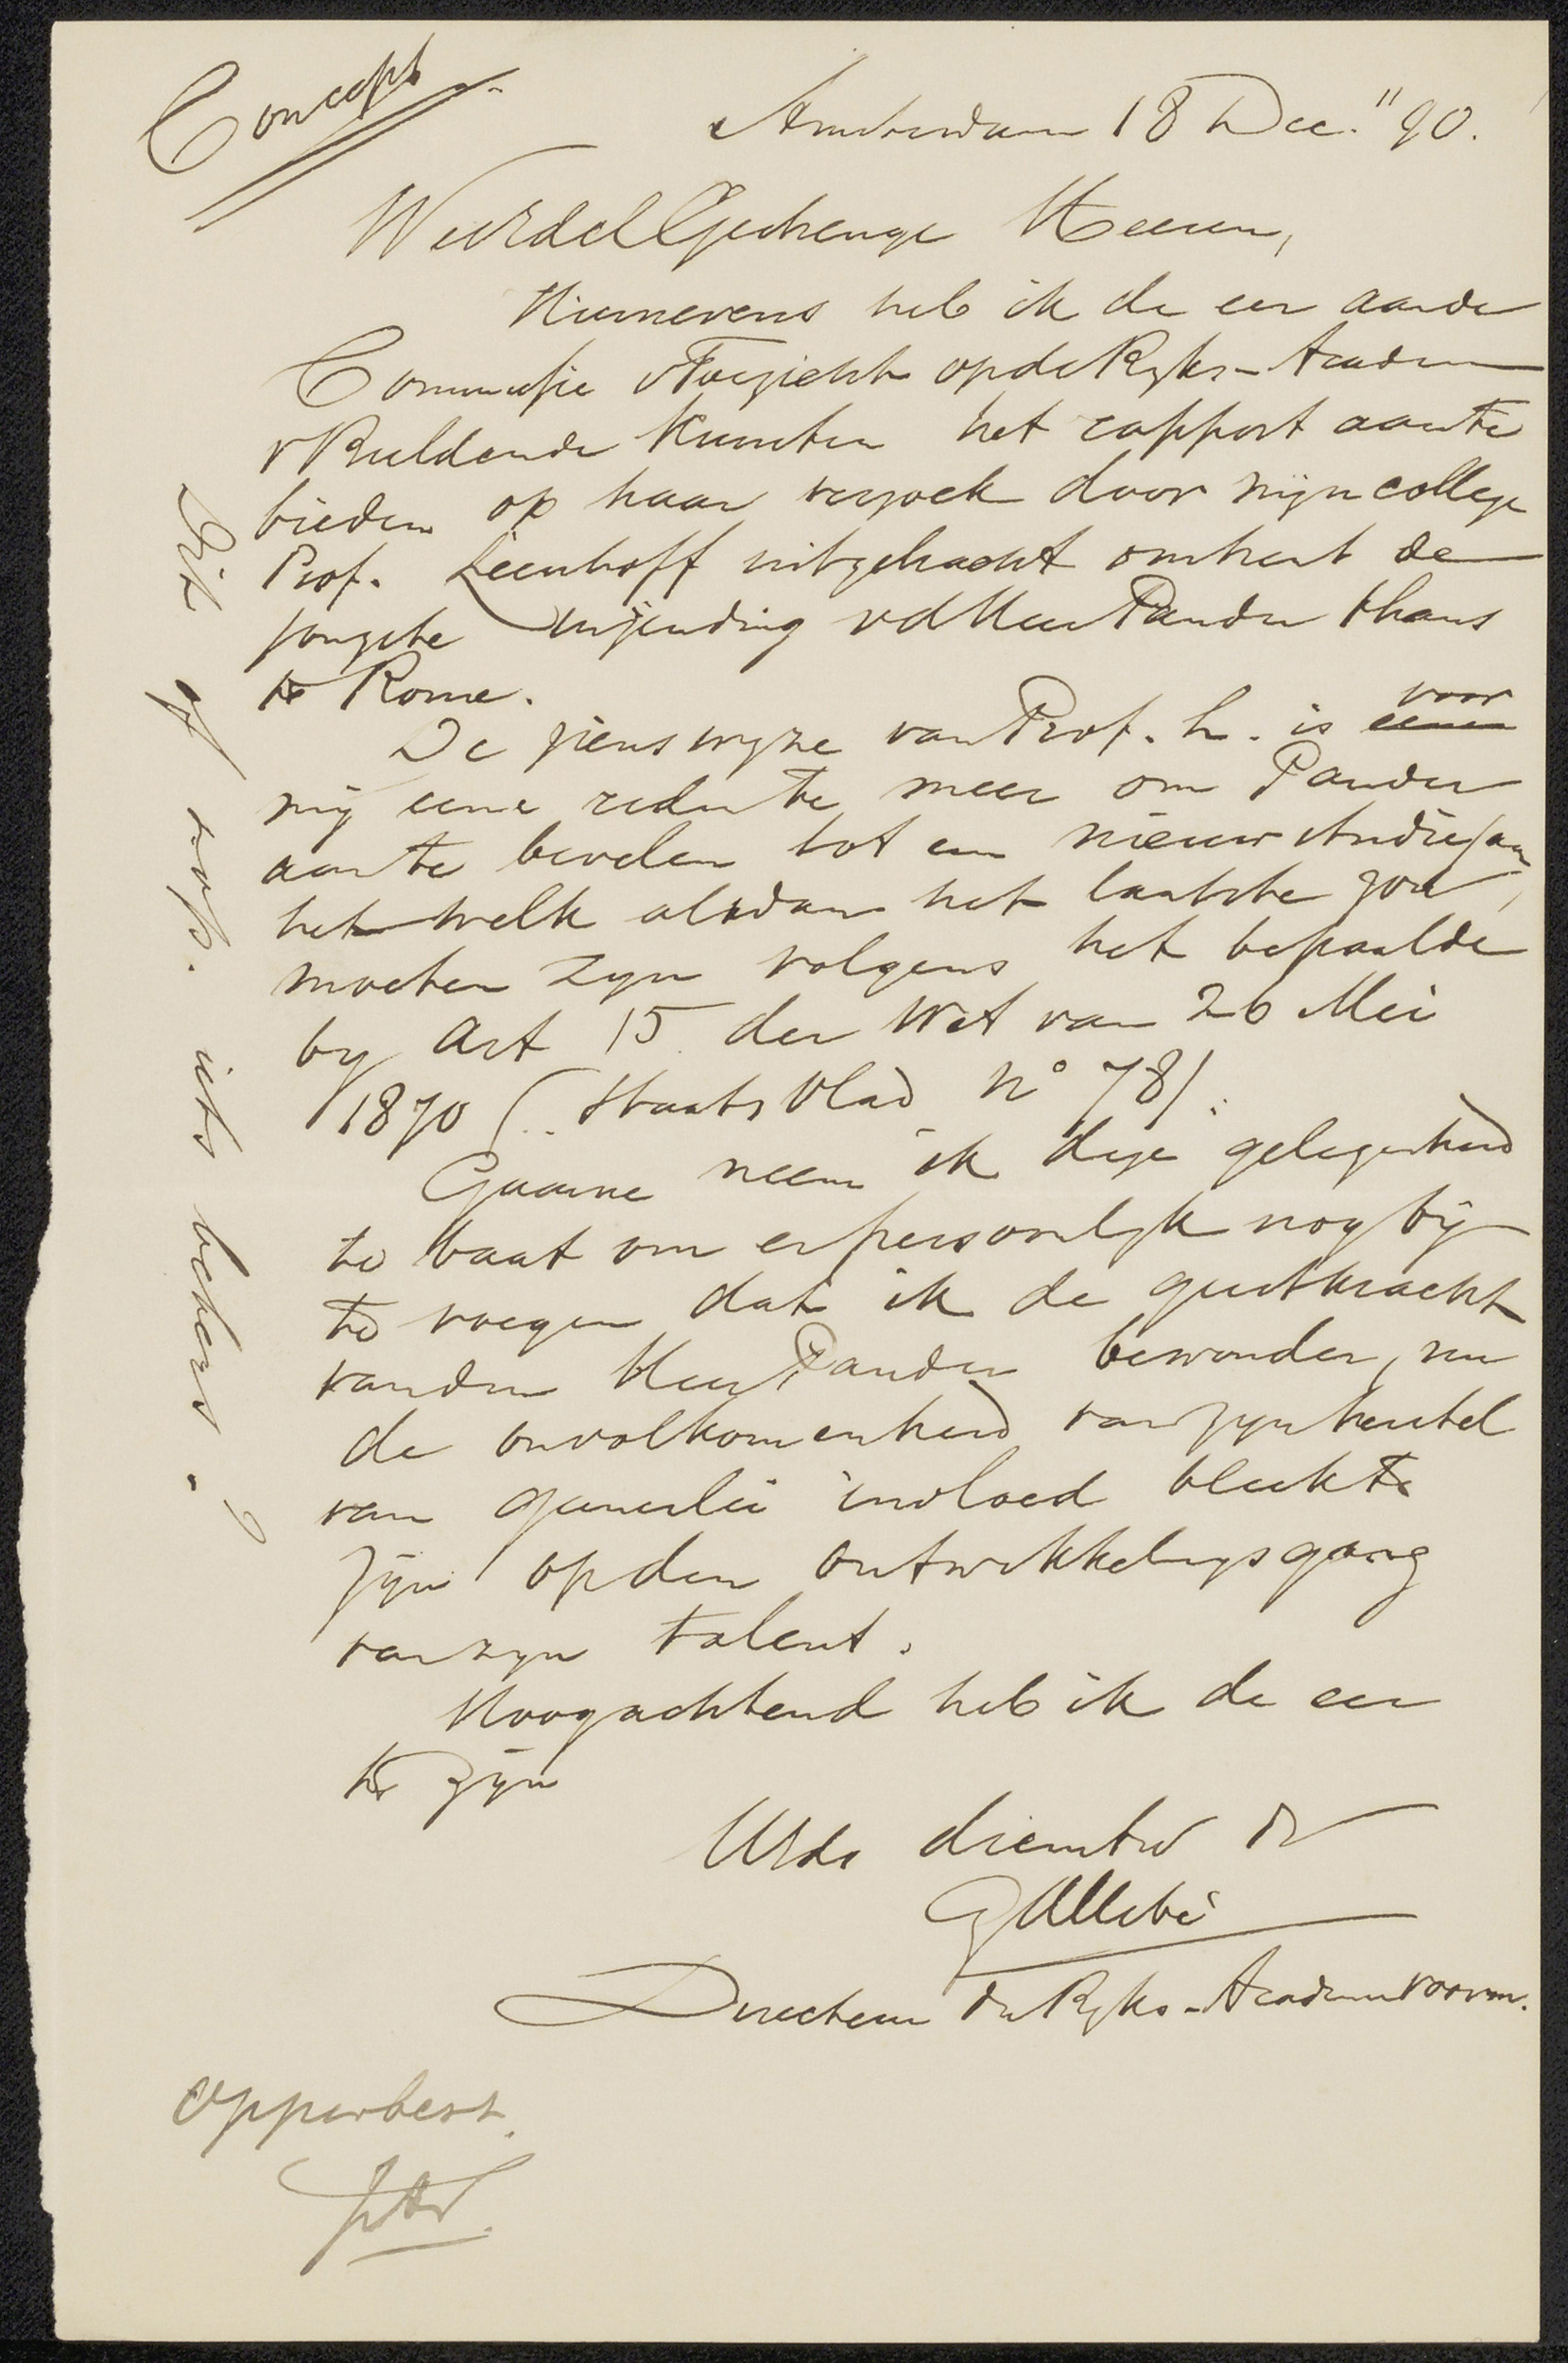 Concept
Amsterdam 18 Dec. "90.
WelEdelGestrenge Heeren,
Hiernevens heb ik de eer aan de
Commissie v Toezicht op de Ryks-Academie
v Beeldende Kunsten het rapport aan te
bieden op haar verzoek door mijn collega
Prof. Leenhoff uitgebracht omtrent de
jongste inzending v d Heer Pander thans
te Rome.
De zienswyze van Prof. L. is eene voor
mij eene reden te meer om Pander
aan te bevelen tot een nieuw studiejaar,
het welk alsdan het laatste zou
moeten zyn volgens het bepaalde
by Art 15 der Wet van 26 Mei
1870 (Staatsblad No 78).
Gaarne neem ik deze gelegenheid
te baat om er persoonlyk nog bij
te voegen dat ik de geestkracht
van den Heer Pander bewonder, nu
de onvolkomenheid van zyn herstel
van geenerlei invloed bleek te
zijn op den ontwikkelingsgang
van zyn talent.
Hoogachtend heb ik de eer
te zijn
UEds dienstw Dr
Allebé
Directeur der Ryks-Academie voorm.
Dit of rapp. iets beters?
Opperbest.